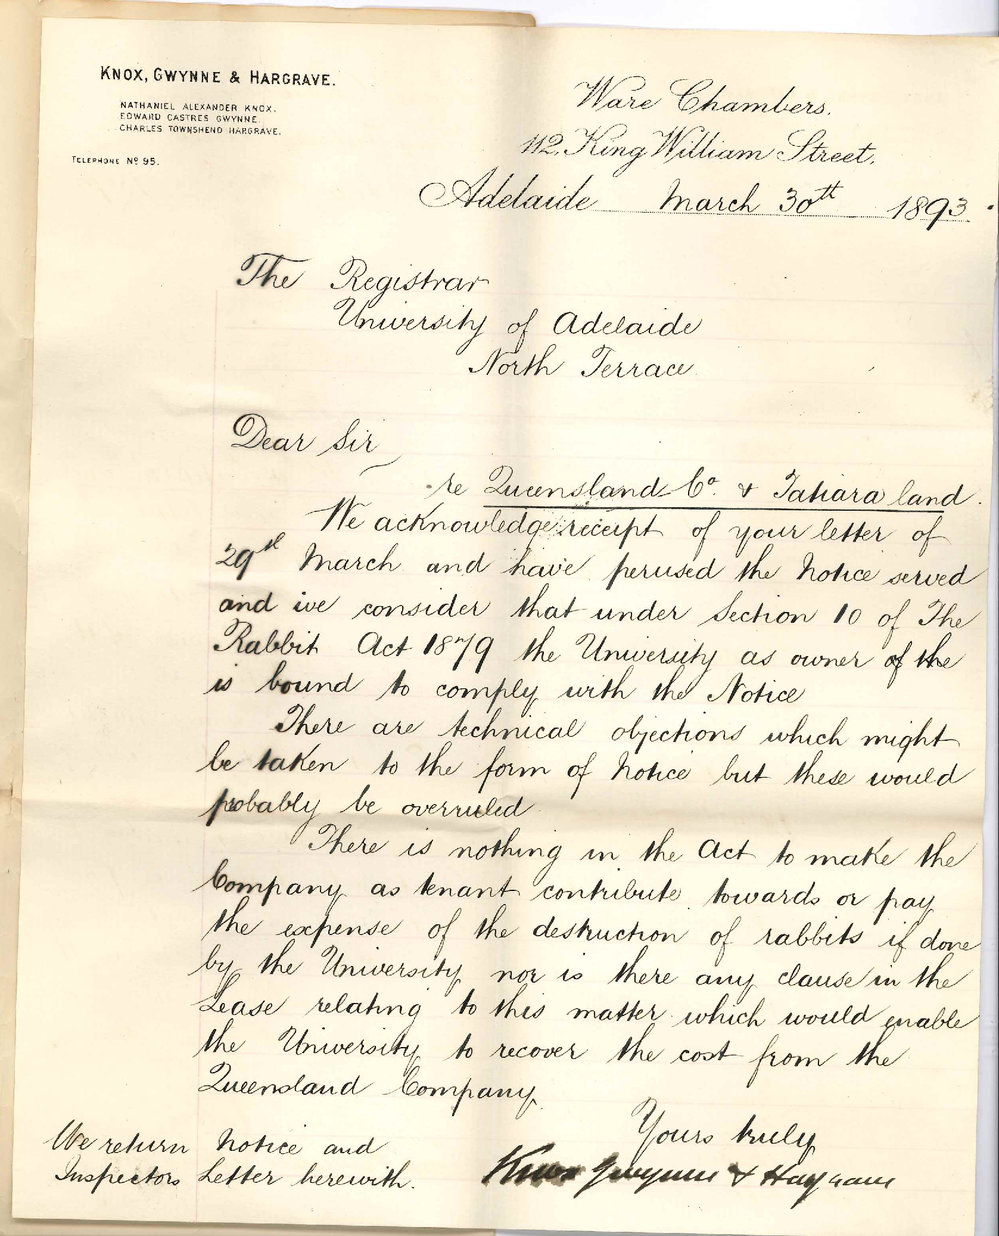 KNOX, GWYNNE & HARGRAVE.
NATHANIEL ALEXANDER KNOX.
EDWARD CASTRES GWYNNE.
CHARLES TOWNSHEND HARGRAVE.
TELEPHONE Nº 95.
Ware Chambers,
112, King William Street,
Adelaide March 30th 1893.
The Registrar
University of Adelaide
North Terrace
Dear Sir
re Queensland Co. & Tatiara land.
We acknowledge receipt of your letter of
29th March and have perused the Notice served
and we consider that under Section 10 of The
Rabbit Act 1879 the University as owner of the
is bound to comply with the Notice
There are technical objections which might
be taken to the form of Notice but these would
probably be overruled
There is nothing in the Act to make the
Company as tenant contribute towards or pay
the expense of the destruction of rabbits if done
by the University nor is there any clause in the
Lease relating to this matter which would enable
the University to recover the cost from the
Queensland Company.
Yours truly
Knox Gwynne & Hargrave
We return Notice and
Inspectors Letter herewith.